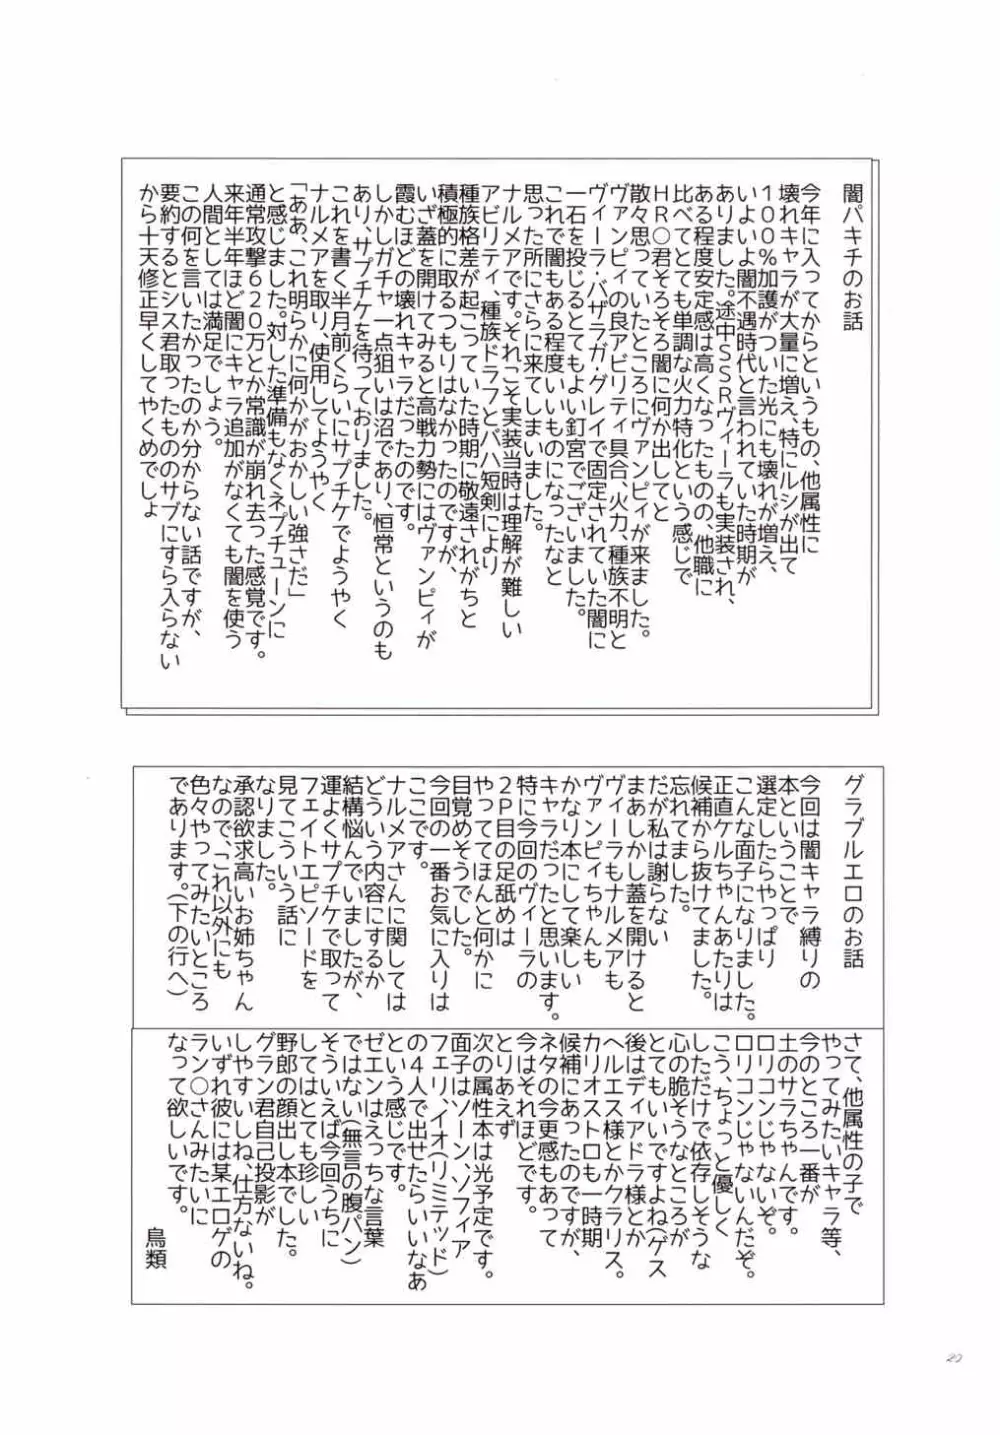 闇パキチのお話
今年に入ってからというもの、他属性に
壊れキャラが大量に増え、特にルシが出て
100%加護がついた光にも壊れが増え、
いよいよ闇不遇時代と言われていた時期が
ありました。途中SSRヴィーラも実装され、
ある程度安定感は高くなったものの、他職に
比べてとても単調な火力特化という感じで
HR○君そろそろ闇に何か出してと
散々思っていたところにヴァンピィが来ました。
ヴァンピィの良アビリティ具合、火力、種族不明と
ヴィーラ・バザラガ・グレイで固定されていた闇に
一石を投じるとてもよい釘宮でございました。
これで闇もある程度いいものになったなと
思った所にさらに来てしまいました。
ナルメアです。それこそ実装当時は理解が難しい
アビリティ、種族ドラフとバハ短剣により
種族格差が起こっていた時期に敬遠されがちと
積極的に取るつもりはなかったのですが、
いざ蓋を開けてみると高戦力勢にはヴァンピィが
霞むほどの壊れキャラだったのです。
しかしガチャ一点狙いは沼であり、恒常というのも
あり、サプチケを待っておりました。
これを書く半月前くらいにサプチケでようやく
ナルメアを取り、使用してようやく
「ああ、これ明らかに何かがおかしい強さだ」
と感じました。対した準備もなくネプチューンに
通常攻撃620万とか常識が崩れ去った感覚です。
来年半年ほど闇にキャラ追加がなくても闇を使う
人間としては満足でしょう。
この何を言いたかったのか分からない話ですが、
要約するとシス君取ったもののサブにすら入らない
から十天修正早くしてやくめでしょ
グラブルエロのお話
今回は闇キャラ縛りの
本ということで
選定したらやっぱり
こんな面子になりました。
正直ケルちゃんあたりは
候補から抜けてました。
忘れてました。
だが私は謝らない
まあしかし蓋を開けると
ヴィーラもナルメアも
ヴァンピィちゃんも
かなり本にして楽しい
キャラだったと思います。
特に今回のヴィーラの
2P目の足舐めは
やっててほんと何かに
目覚めそうでした。
今回の一番お気に入りは
ここです。
ナルメアさんに関しては
どういう内容にするか
結構悩んでいましたが、
運よくサプチケで取って
フェイトエピソードを
見てこういう話に
なりました。
承認欲求高いお姉ちゃん
なので、これ以外にも
色々やってみたいところ
であります。(下の行へ)
さて、他属性の子で
やってみたいキャラ等、
今のところ一番が
土のサラちゃんです。
ロリコンじゃないぞ。
ロリコンじゃないんだぞ。
こう、ちょっと優しく
しただけで依存しそうな
心の脆そうなところが
とてもいいですよね(ゲス
後はディアドラ様とか
ヘルエス様とかクラリス。
カリオストロも一時期
候補にあったのですが、
ネタの今更感もあって
今はそれほどです。
とりあえず
次の属性本は光予定です。
面子はソーン、ソフィア
フェリ、イオ(リミテッド)
の4人で出せたらいいなあ
という感じです。
ゼエンはえっちな言葉
ではない(無言の腹パン)
そういえば今回うちに
してはとても珍しい
野郎の顔出し本でした。
グラン君自己投影が
しやすいしね、仕方ないね。
いずれ彼には某エロゲの
ラン○さんみたいに
なって欲しいです。
鳥類
22